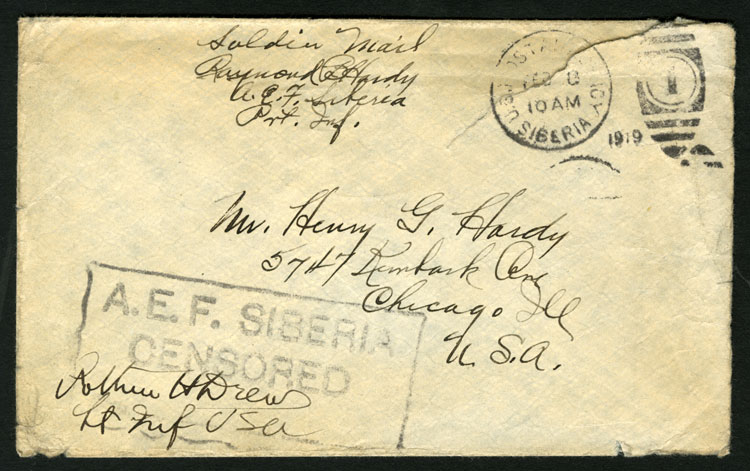 Soldier Mail
Raymond E Hardy
A.E.F. Siberia
Pvt. Inf.
U.S. POSTAL AGENCY
FEB
10 AM
SIBERIA
1919
1
Mr. Henry G. Hardy
5747 Kimbark Ave
Chicago Ill
U.S.A.
A.E.F. SIBERIA
CENSORED
H Drew
Lt Inf USA